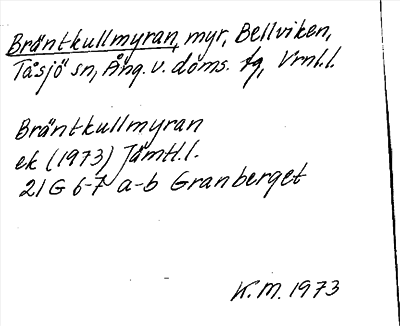 Bräntkullmyran, myr, Bellviken,
Tåsjö sn, Ång. v. doms. fg, Vrnl.l.
Bräntkullmyran
ek (1973) Jämtl.l.
21 G 6-7 a-b Granberget
K.M. 1973